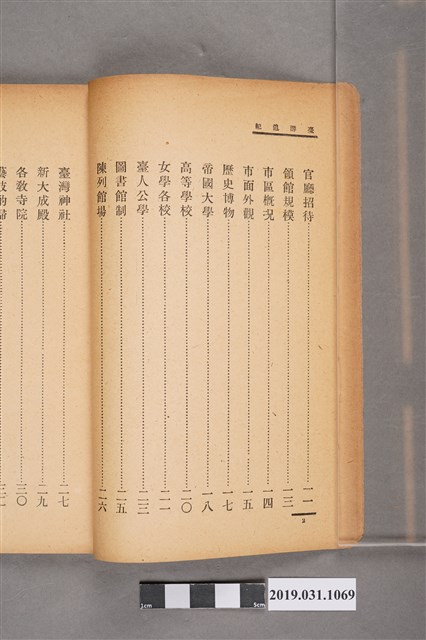 臺游追紀
官廳招待……一一
領館規模……一三
市區概況……一四
市面外觀……一五
歷史博物……一七
帝國大學……一八
高等學校……二〇
女學各校……二一
臺人公學……二三
圖書館制……二五
陳列館場……二六
2
臺灣神社……二七
新大成殿……二九
各教寺院……三〇
1cm
5cm
2019.031.1069